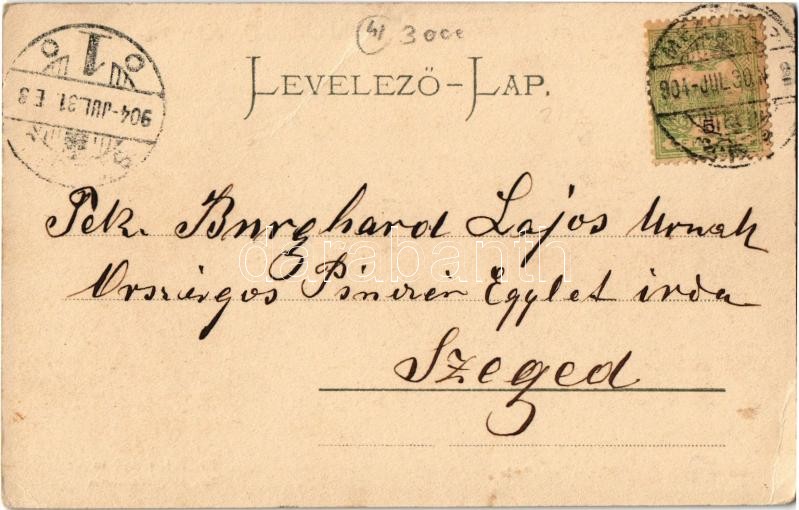 41 3000
LEVELEZŐ-LAP.
904-JUL.31. E 8
1
904-JUL.30.
5
Tek. Burghard Lajos Urnak
Országos Pinczér Egylet irda
Szeged
darabanth